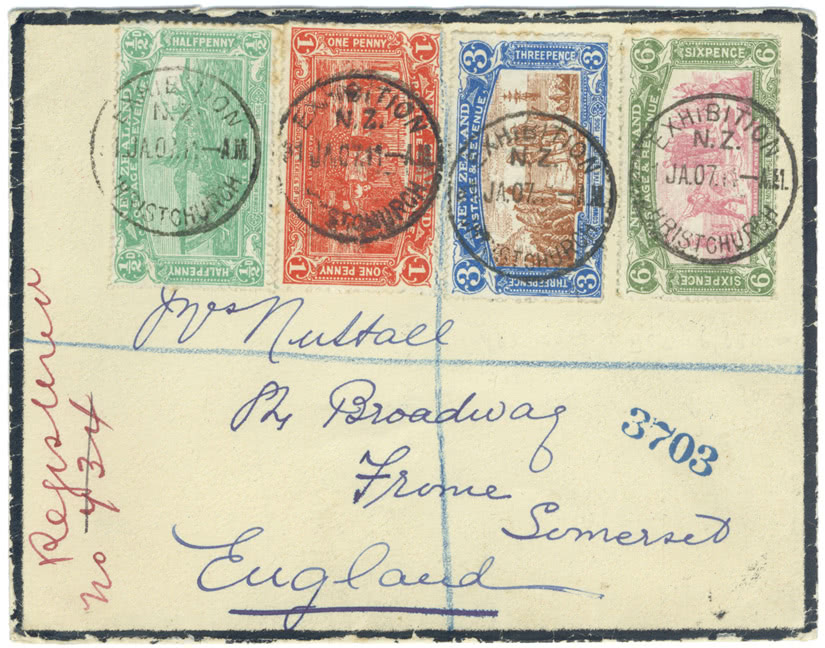 ½D HALFPENNY ½D
NEW ZEALAND
POSTAGE & REVENUE
½D HALFPENNY ½D
1 ONE PENNY 1
1 ONE PENNY 1
3 THREEPENCE 3
NEW ZEALAND
POSTAGE & REVENUE.
3 THREEPENCE 3
6 SIXPENCE 6
NEW ZEALAND
POSTAGE & REVENUE
6 SIXPENCE 6
EXHIBITION
N.Z.
CHRISTCHURCH
EXHIBITION
N.Z.
JA.07.11-AM
CHRISTCHURCH
EXHIBITION
N.Z.
JA.07
AM
CHRISTCHURCH
EXHIBITION
N.Z.
JA.07.11-AM
CHRISTCHURCH
Mrs Nuttall
Broadway
Frome
Somerset
England
3703
Registered
No 434